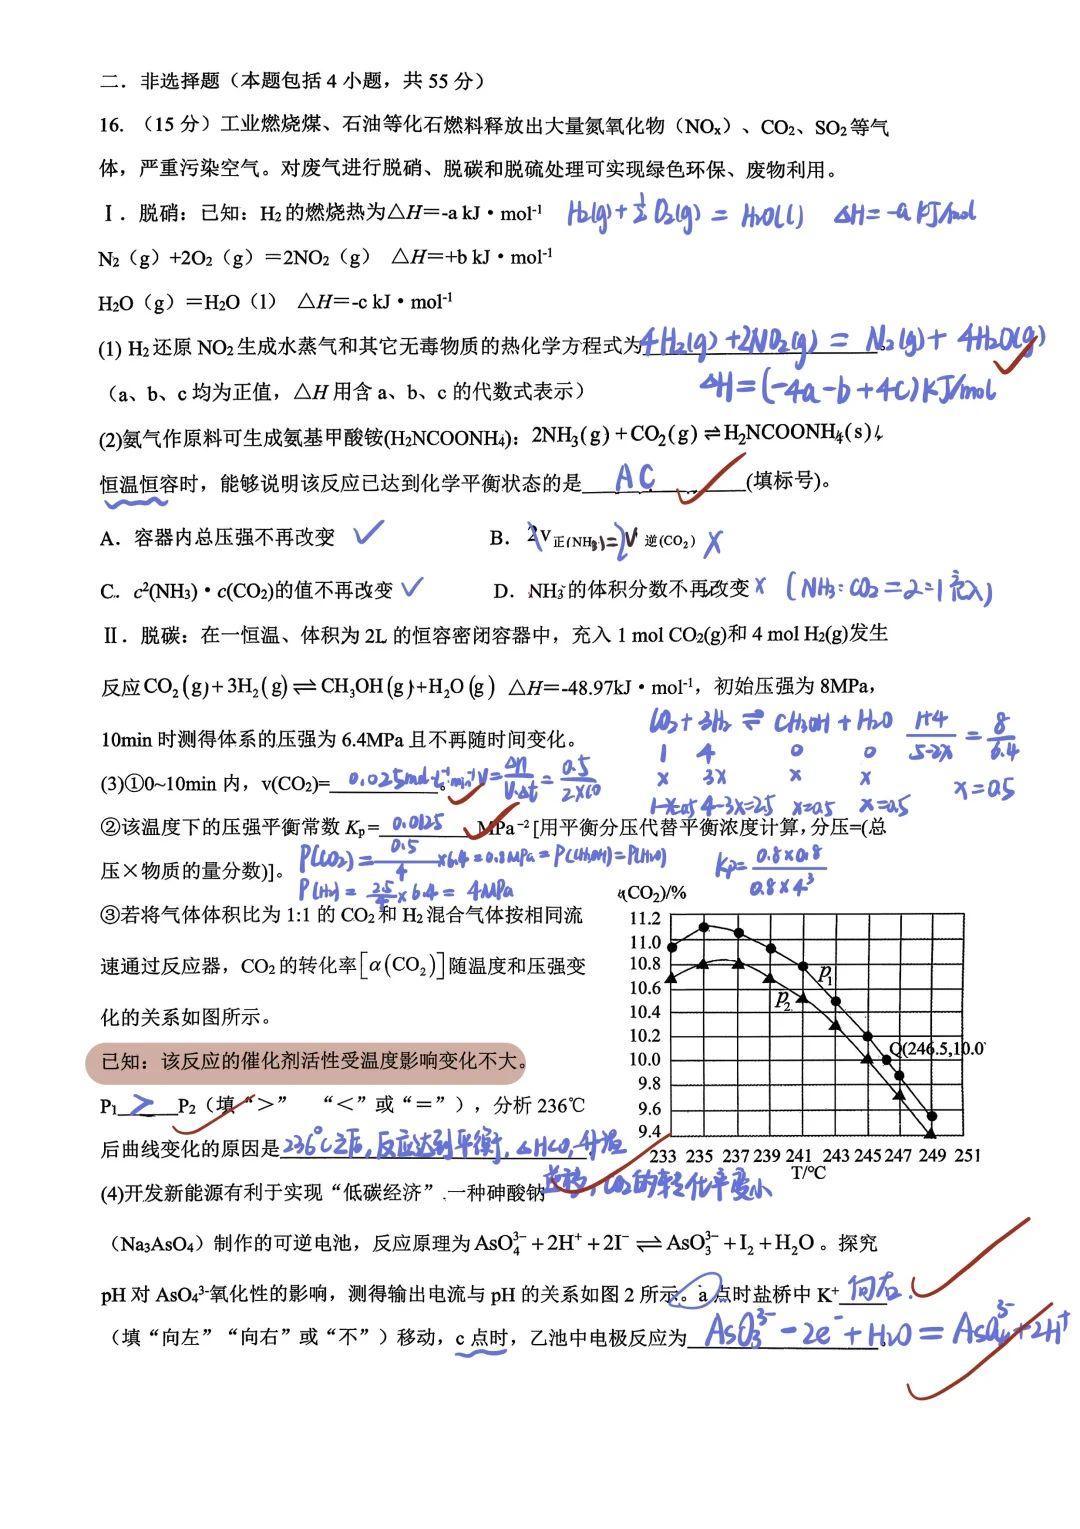 二．非选择题（本题包括 4 小题，共 55 分）
16. （15 分）工业燃烧煤、石油等化石燃料释放出大量氮氧化物（NOₓ）、CO₂、SO₂等气
体，严重污染空气。对废气进行脱硝、脱碳和脱硫处理可实现绿色环保、废物利用。
Ⅰ．脱硝：已知：H₂的燃烧热为△H＝-a kJ·mol⁻¹ H₂(g)+½O₂(g) = H₂O(l) ΔH=-a kJ/mol
N₂（g）+2O₂（g）＝2NO₂（g） △H＝+b kJ·mol⁻¹
H₂O（g）＝H₂O（l） △H＝-c kJ·mol⁻¹
(1) H₂还原 NO₂生成水蒸气和其它无毒物质的热化学方程式为 4H₂(g)+2NO₂(g) = N₂(g)+4H₂O(g)
（a、b、c 均为正值，△H 用含 a、b、c 的代数式表示） ΔH=(-4a-b+4c)kJ/mol
(2)氨气作原料可生成氨基甲酸铵(H₂NCOONH₄)：2NH₃(g)+CO₂(g)⇌H₂NCOONH₄(s)，
恒温恒容时，能够说明该反应已达到化学平衡状态的是 AC (填标号)。
A．容器内总压强不再改变 ✓ B．2v正(NH₃)=2v逆(CO₂) ×
C．c²(NH₃)·c(CO₂)的值不再改变 ✓ D．NH₃的体积分数不再改变 × (NH₃:CO₂=2=1充入)
Ⅱ．脱碳：在一恒温、体积为 2L 的恒容密闭容器中，充入 1 mol CO₂(g)和 4 mol H₂(g)发生
反应CO₂(g)+3H₂(g)⇌CH₃OH(g)+H₂O(g) △H＝-48.97kJ·mol⁻¹，初始压强为 8MPa，
CO₂+3H₂ ⇌ CH₃OH+H₂O 1+4/5-2x = 8/6.4
10min 时测得体系的压强为 6.4MPa 且不再随时间变化。 1 4 0 0
(3)①0~10min 内，v(CO₂)= 0.025mol·L⁻¹min⁻¹。 V=Δn/V·Δt=0.5/2×10 x 3x x x x=0.5
1-x=0.5 4-3x=2.5 x=0.5 x=0.5
②该温度下的压强平衡常数 Kp= 0.0125 MPa⁻²[用平衡分压代替平衡浓度计算，分压=(总
压×物质的量分数)]。 P(CO₂)=0.5/4×6.4=0.8MPa=P(CH₃OH)=P(H₂O) Kp=0.8×0.8/0.8×4³
P(H₂)=2.5/4×6.4=4MPa
③若将气体体积比为 1:1 的 CO₂和 H₂混合气体按相同流
速通过反应器，CO₂的转化率[α(CO₂)]随温度和压强变
化的关系如图所示。
已知：该反应的催化剂活性受温度影响变化不大。
P₁ > P₂（填“>” “<”或“=”），分析 236℃
后曲线变化的原因是 236℃之后,反应达到平衡,ΔH<0,升温
逆移,CO₂的转化率变小
α(CO₂)/%
11.2
11.0
10.8
10.6
10.4
10.2
10.0
9.8
9.6
9.4
p₁
p₂
Q(246.5,10.0
233 235 237 239 241 243 245 247 249 251
T/℃
(4)开发新能源有利于实现“低碳经济”．一种砷酸钠
（Na₃AsO₄）制作的可逆电池，反应原理为AsO₄³⁻+2H⁺+2I⁻⇌AsO₃³⁻+I₂+H₂O。探究
pH 对 AsO₄³⁻氧化性的影响，测得输出电流与 pH 的关系如图 2 所示。a 点时盐桥中 K⁺ 向右.
（填“向左”“向右”或“不”）移动，c 点时，乙池中电极反应为 AsO₃³⁻-2e⁻+H₂O=AsO₄³⁻+2H⁺。